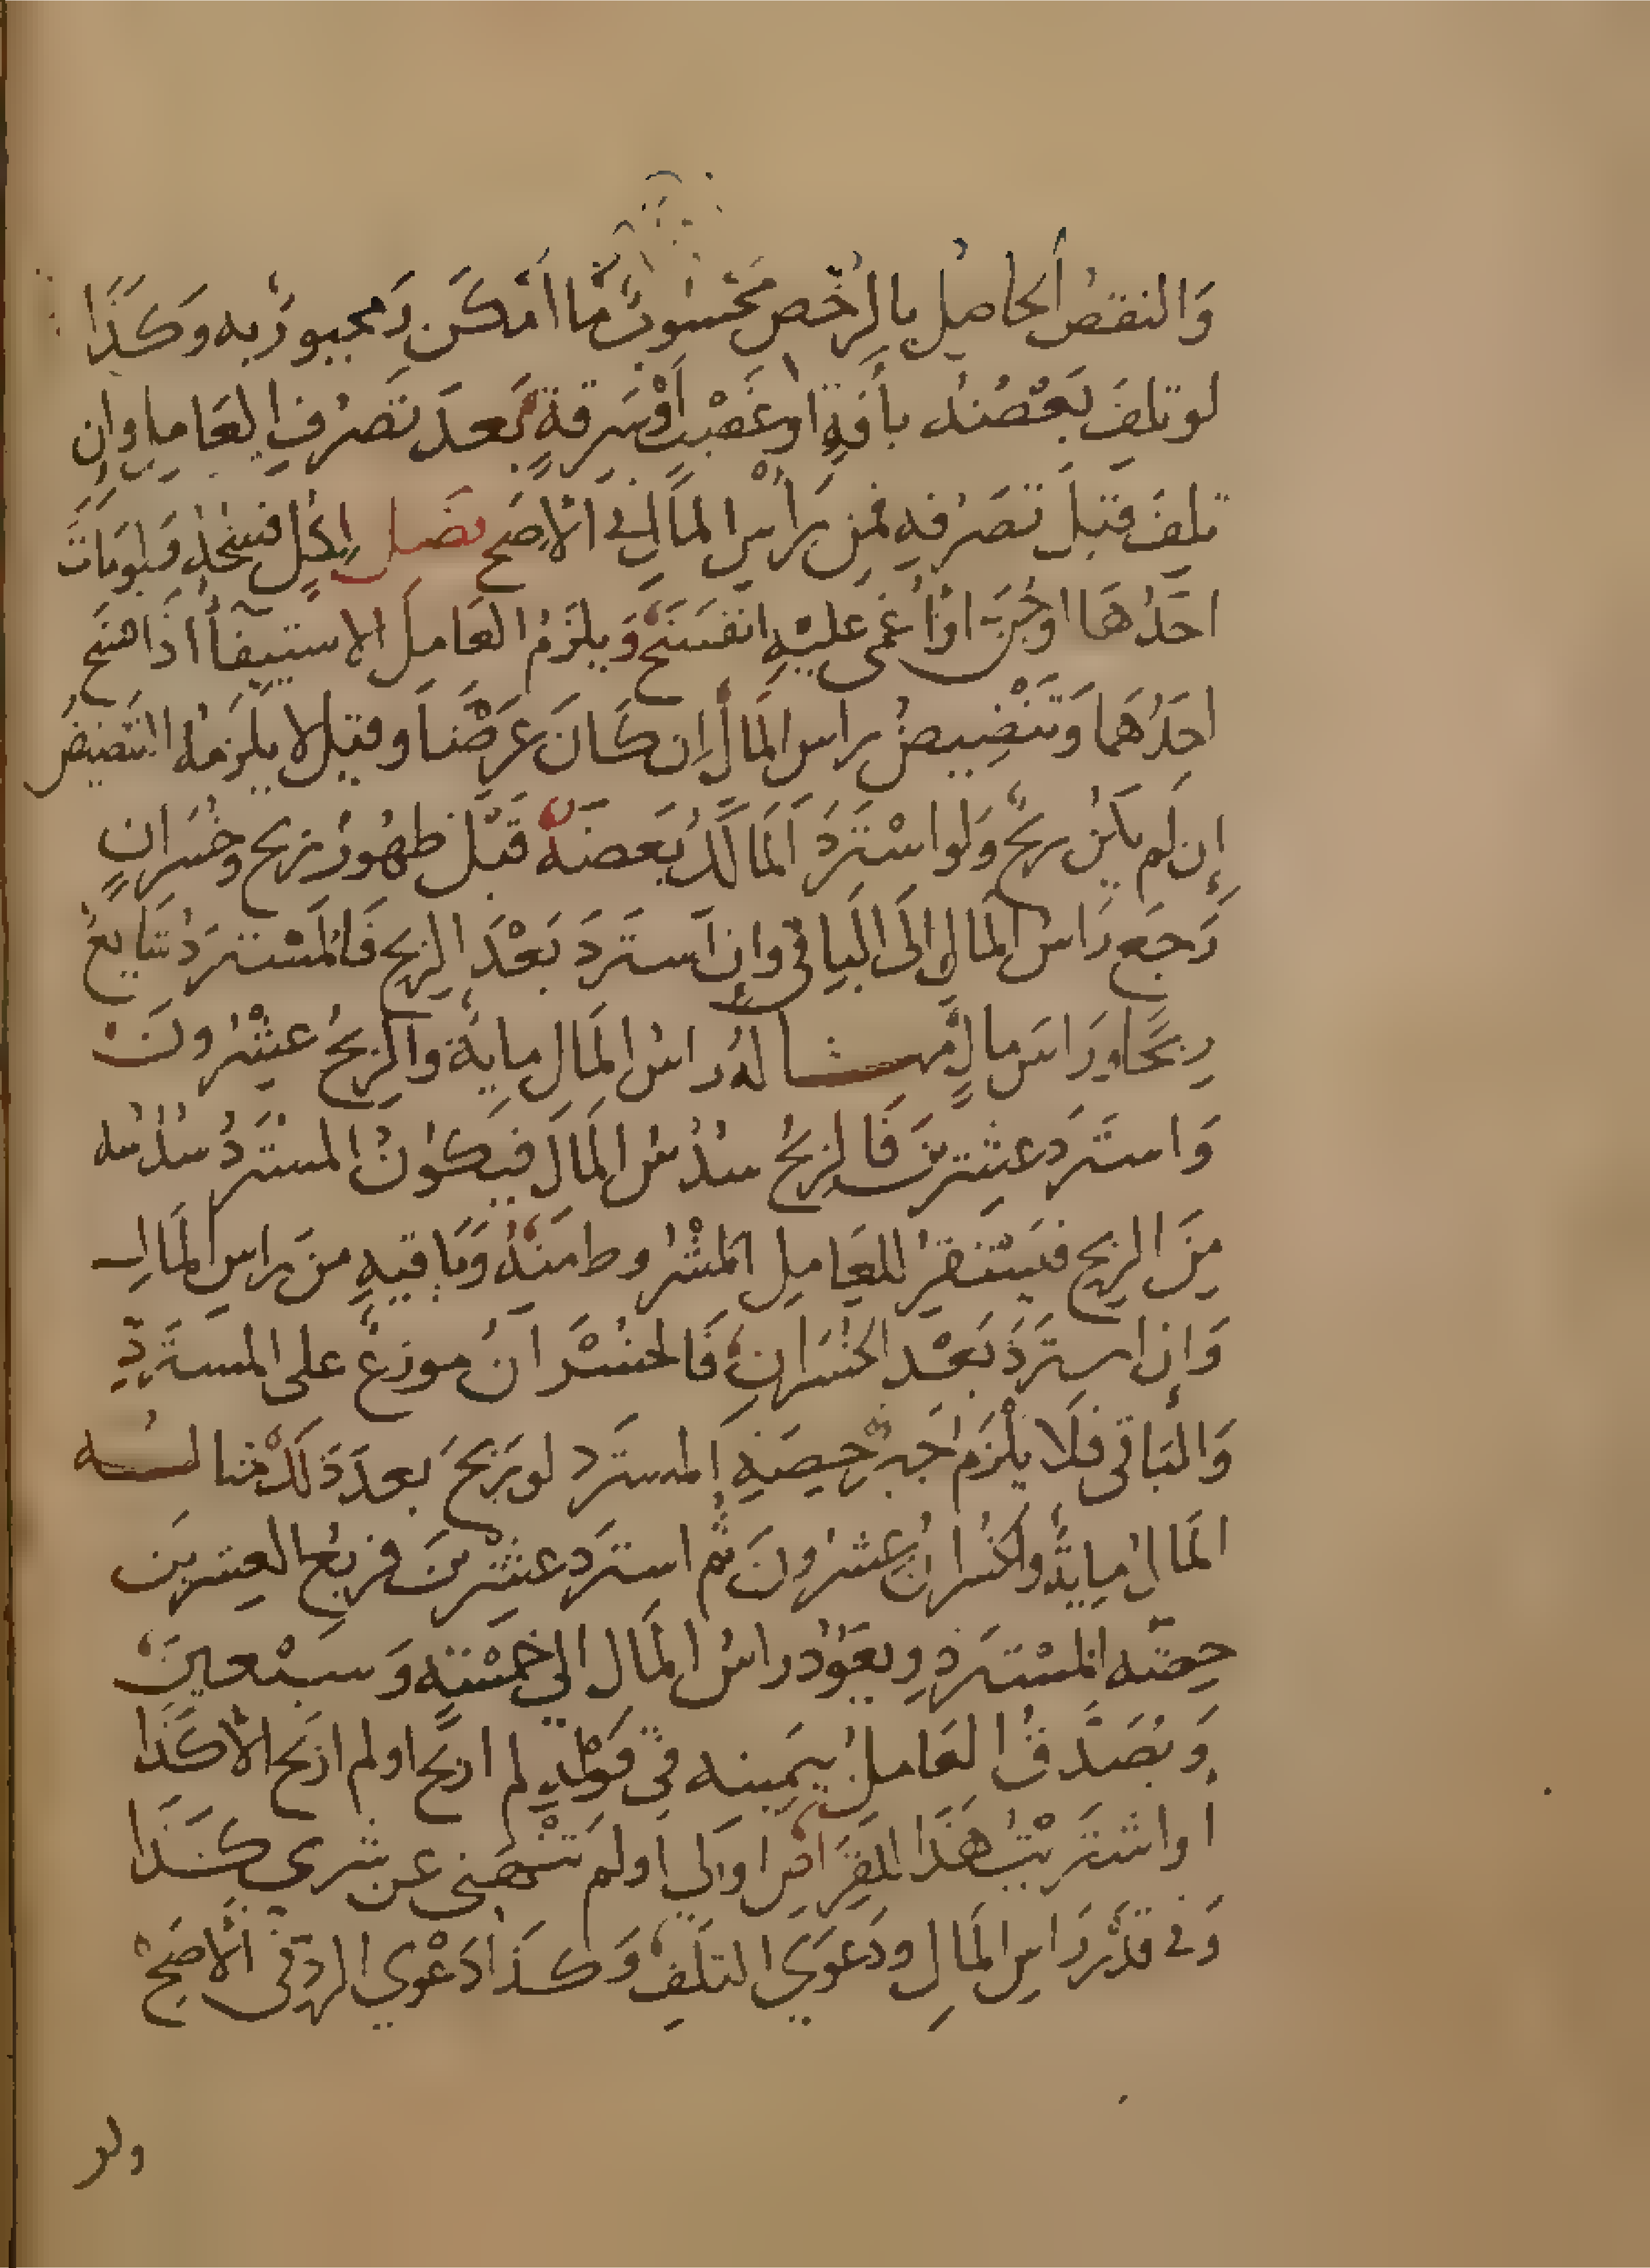 وَالنقصُ الحاصِل بالرُّخصِ محسُوبٌ مَا اَمْكَنَ وَمجبورٌ به وَكَذَا
لو تلفَ بَعْضُهُ بأفةٍ او غَصْبٍ اَوْ سَرقةٍ بَعدَ تَصَرُفِ العَامِلِ وان
تلِفَ قَبلَ تصَرُفهِ فَمِن رَأسِ المالِ في الاصَحِ فصَل لِكلٍ فسْخُهُ وَلو مَاتَ
احَدُهَما او جُنَ او أُغمى عليْهِ انفسَخَ وَيلزَمُ العَامِلَ الاستيفَأ اذَا فسَخَ
احَدُهَما وَتَنْضِيضُ راس المَال اِن كَانَ عَرَضْاً وقيل لا يلزَمهُ التنضيضُ
إِن لم يَكُن ربحٌ وَلو اسْتَرَدَ المَالكُ بَعضَهُ قَبْل ظهُورُ ربح وخسَرانٍ
رَجَع رَاسُ المَالِ الَى البَاقي وان استَردَ بَعْدَ الربح فَالمسْتَردُ شَايعٌ
رِبحًا ورَاسَ مالٍ مثاله رَاسُ المَالِ مايةٌ والرِبحُ عِشْرونَ
وَاستَردَ عشرينَ فَالربحُ سُدُسُ المَالَ فيَكوُنُ المسترَدُ سُدُسُه
مِنَ الربح فيَسْتَقرُ للعَامِل المشْرُوط مِنْهُ وَبَاقيهِ مِنَ راسِ المَالِ
وَإِن استرَدَ بَعْدَ الخسَرانِ فَالخسْرَانُ موزعٌ على المسترَدِّ
وَالبَاقى فلَا يلْزَم جَبر حِصَةِ المسترَد لو رَبحَ بَعدَ ذَلكَ مثاله
المَالُ مِايةٌ والخسرانُ عشرُونَ ثم استردَ عشْرينَ فربعُ العِشرينَ
حِصّه المسْترَدِ ويعَوُدُ راسُ المَال الي خمْسَةٍ وَ سبْعينَ
وَيُصَدَّقُ العَاملُ بيَمِينه في قَوْلهِ لم اربَح او لم اربَح الاكَذَا
او اشتَريْتُ هَذَا للقِرَاضِ او لي اَو لم تنْهَنى عن شري كذَا
وَفي قَدْرِ رَاسِ المَالِ ودَعوَي التلَفِ وَكذَا دَعْوي الردِ في الاصَحِ
ولو